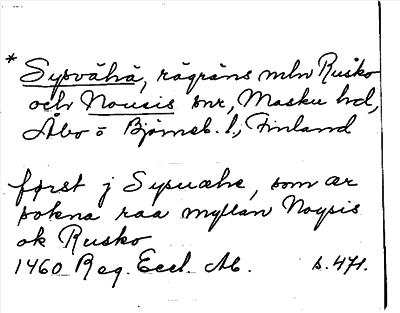 * Sysvähä, rågräns mln Rusko
och Nousis snr, Masku hd,
Åbo o Björneb. l., Finland
först j Sysuæhe, som ær
sokna raa myllan Noysis
ok Rusko
1460 Reg. Eccl. Ab. s. 471.